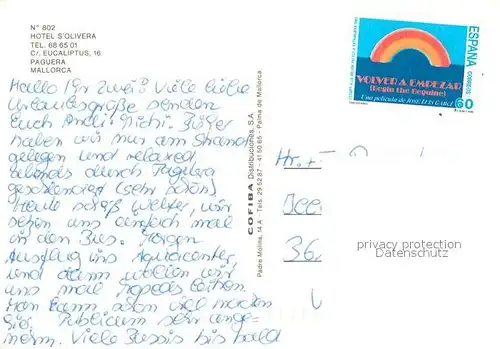 N° 802
HOTEL S'OLIVERA
TEL. 68 65 01
C/. EUCALIPTUS, 16
PAGUERA
MALLORCA
Hallo Ihr zwei! Viele liebe
Urlaubsgrüße senden
Euch Andi + Michi. Bisher
haben wir nur am Strand
gelegen und relaxed
abends durch Paguera
geschlendert (sehr schön)
Heute schlechtes Wetter, wir
setzen uns einfach mal
in den Bus. Morgen
Ausflug ins Aquacenter,
und dann wollen wir
uns mal Mopeds leihen.
Man kann schon viel machen
hier. Publikum sehr ange-
nehm. Viele Bussis bis bald
COFIBA Distribuciones, S.A.
Padre Molina, 14 A - Tels. 29 52 87 - 41 50 65 - Palma de Mallorca
ESPAÑA
CORREOS
VOLVER A EMPEZAR
(Begin the Beguine)
Una película de JOSE LUIS GARCI
60
Hr. +
36
privacy protection
Datenschutz